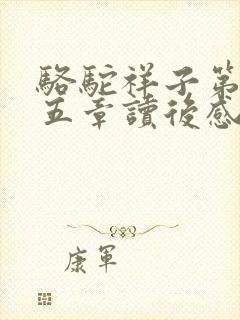 駱駝祥子第
五章讀後感
康軍